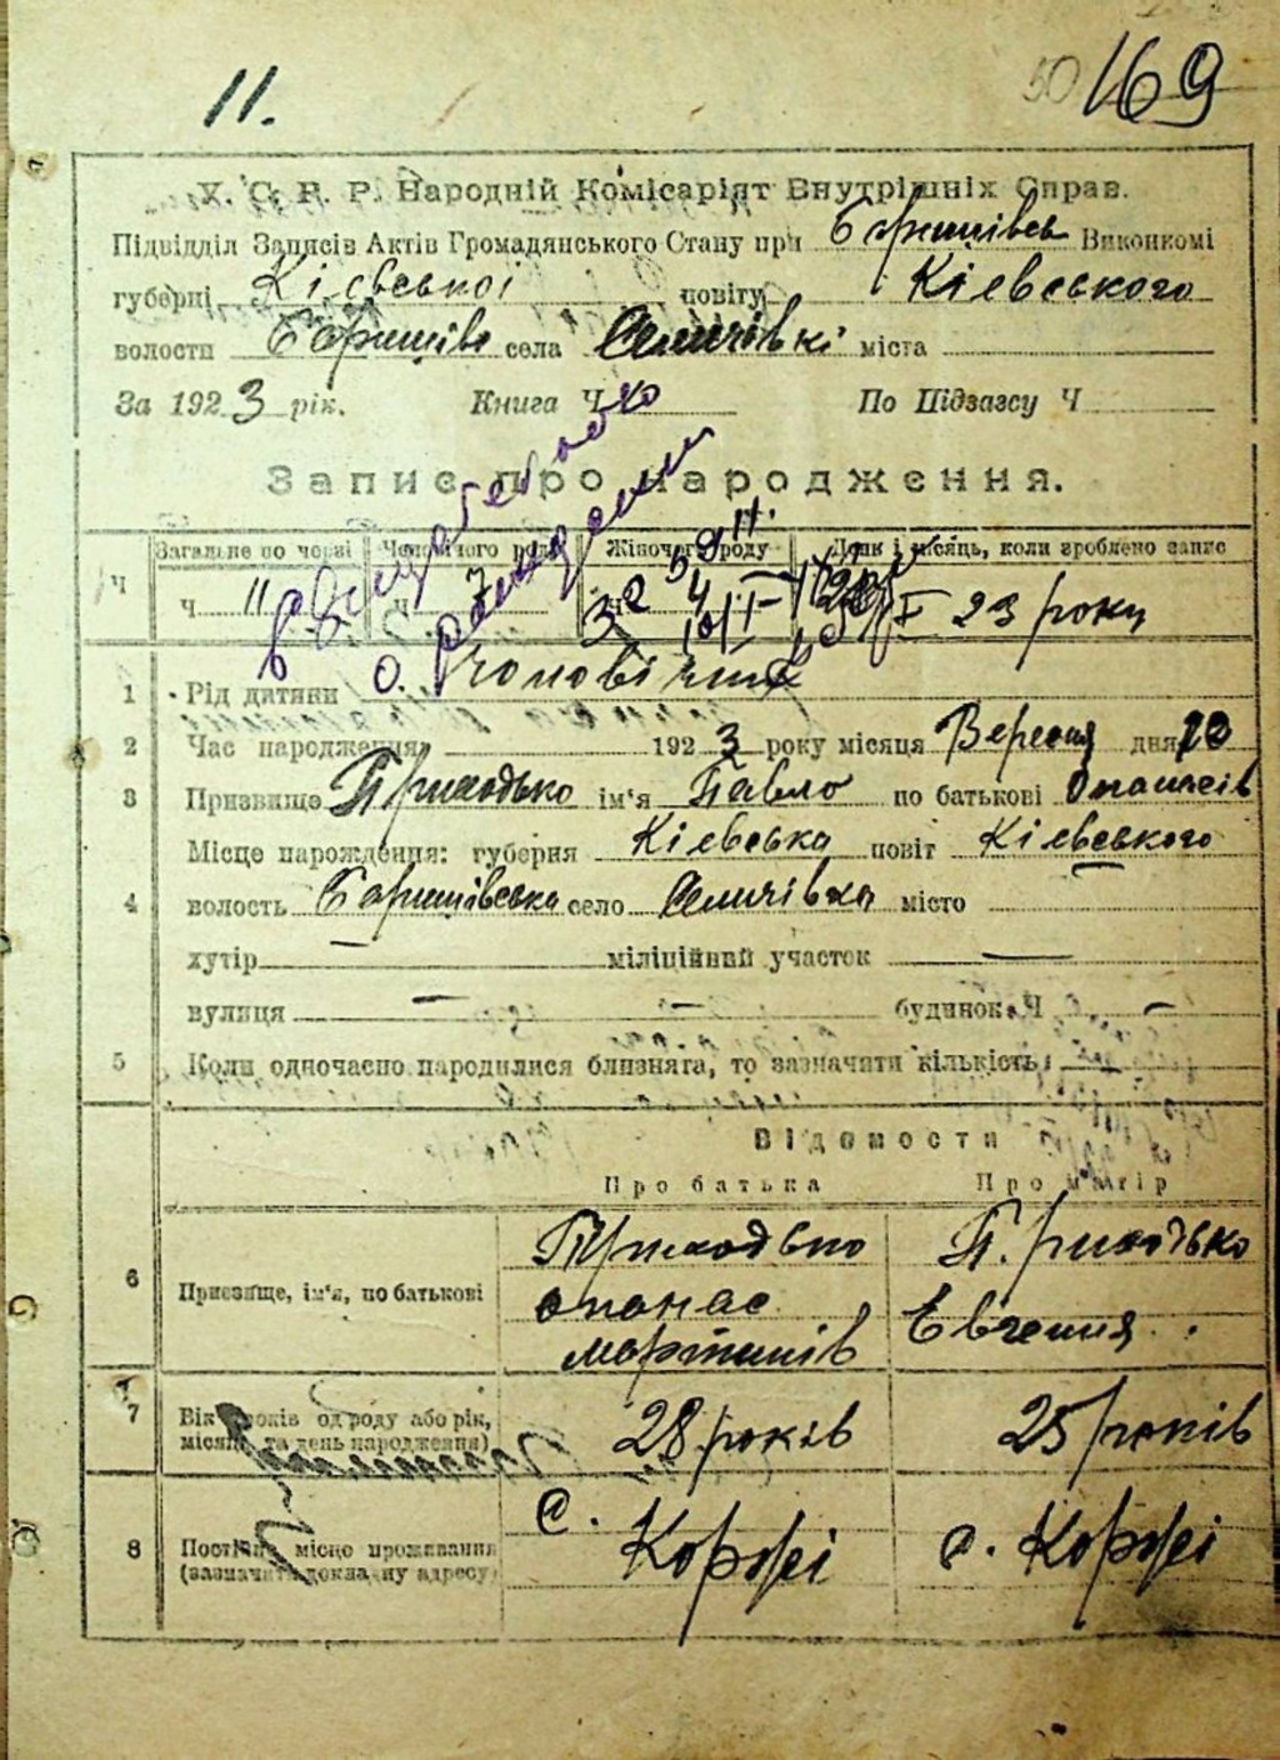 11.
50 169
Х. С. Р. Р. Народній Комісаріят Внутрішніх Справ.
Підвідділ Записів Актів Громадянського Стану при Баришівськ Виконкомі
губерні Кієвської повіту Кієвського
волости Баришівс села Селичівкі міста
За 1923 рік. Книга Ч По Підзагсу Ч
Запис про народження.
Загальне по черзі Чоловічого роду Жіночого роду День і місяць, коли зроблено запис
Ч ч 11 ч 7 23 року
1 Рід дитини Чоловічий
2 Час народження 1923 року місяця Вересня дня
3 Призвище Приходько ім'я Павло по батькові Опанасів
Місце народження: губерня Кієвська повіт Кієвського
4 волость Баришівська село Селичівка місто
хутір — міліційний участок —
вулиця — — будинок Ч —
5 Коли одночасно народилися близнята, то зазначити кількість —
Відомости
Про батька Про матір
6 Призвище, ім'я, по батькові Приходько П.риходько
опанас Евгения
мартинів
7 Вік (років од роду або рік, 28 років 25 років
місяць та день народження)
8 Постійне місце проживання с. Коржі с. Коржі
(зазначити докладну адресу)